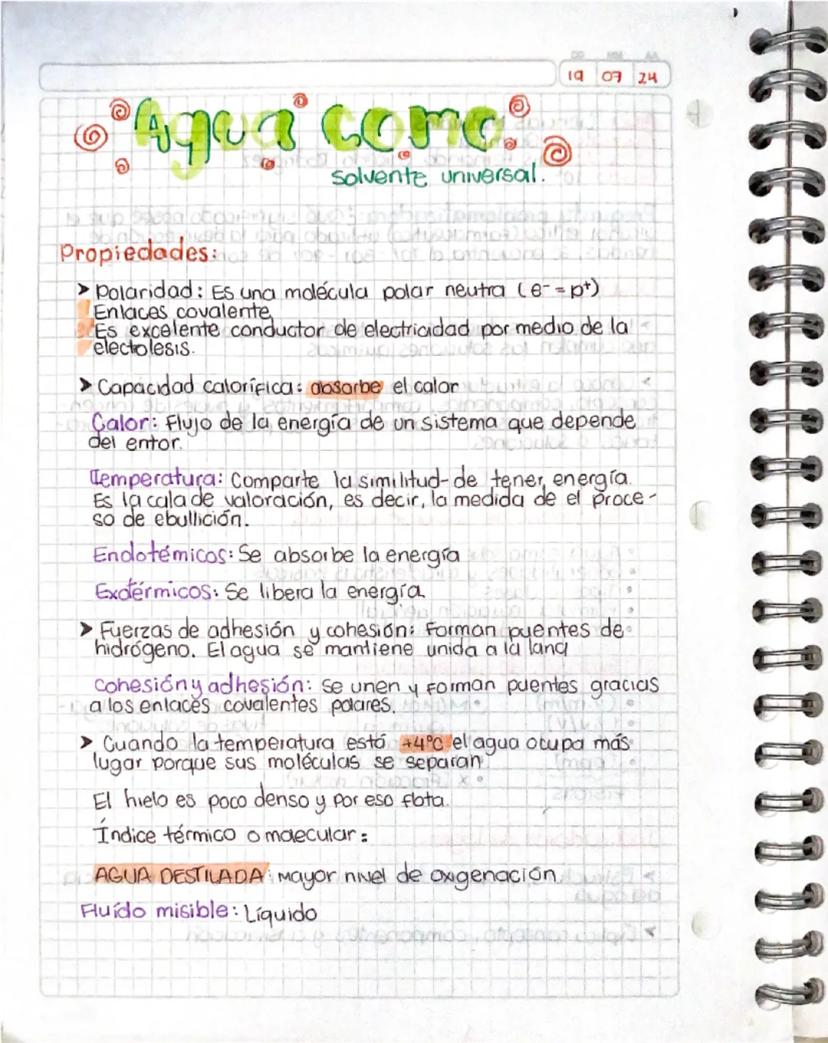 19 07 24
Agua como
solvente universal.
Propiedades:
➤ Polaridad: Es una molécula polar neutra (e⁻ = p⁺)
Enlaces covalente
Es excelente conductor de electricidad por medio de la
electolesis.
➤ Capacidad calorífica: absorbe el calor
Calor: Flujo de la energía de un sistema que depende
del entor.
Temperatura: Comparte la similitud de tener energía.
Es la cala de valoración, es decir, la medida de el proce-
so de ebullición.
Endotémicos: Se absorbe la energía
Exotérmicos: Se libera la energía.
➤ Fuerzas de adhesión y cohesión: Forman puentes de
hidrógeno. El agua se mantiene unida a la
Cohesión y adhesión: Se unen y forman puentes gracias
a los enlaces covalentes polares.
➤ Cuando la temperatura está +4°C el agua ocupa más
lugar porque sus moléculas se separan
El hielo es poco denso y por eso flota.
Índice térmico o molecular:
AGUA DESTILADA: Mayor nivel de oxigenación
Fluído misible: Líquido